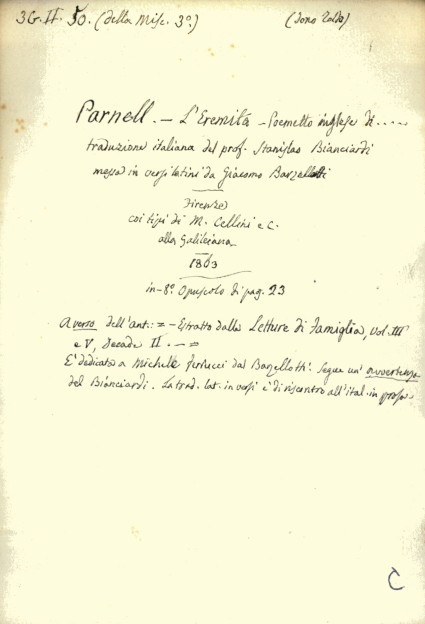 3G. II. 50. (della Misc. 3º.) (dono Zoldo)
Parnell. — L'Eremita — Poemetto inglese di .....
traduzione italiana del prof. Stanislao Bianciardi
messa in versi latini da Giacomo Barzellotti
Firenze
coi tipi di M. Cellini e C.
alla Galileiana
1863
in-8º. Opuscolo di pag. 23
A verso dell'ant: = — Estratto dalle Letture di Famiglia, Vol. III
e V, Decade II. — =
E' dedicato a Michele Ferrucci dal Barzellotti. Segue un' avvertenza
del Bianciardi. La trad. lat. in versi è di riscontro all'ital. in prosa.
C